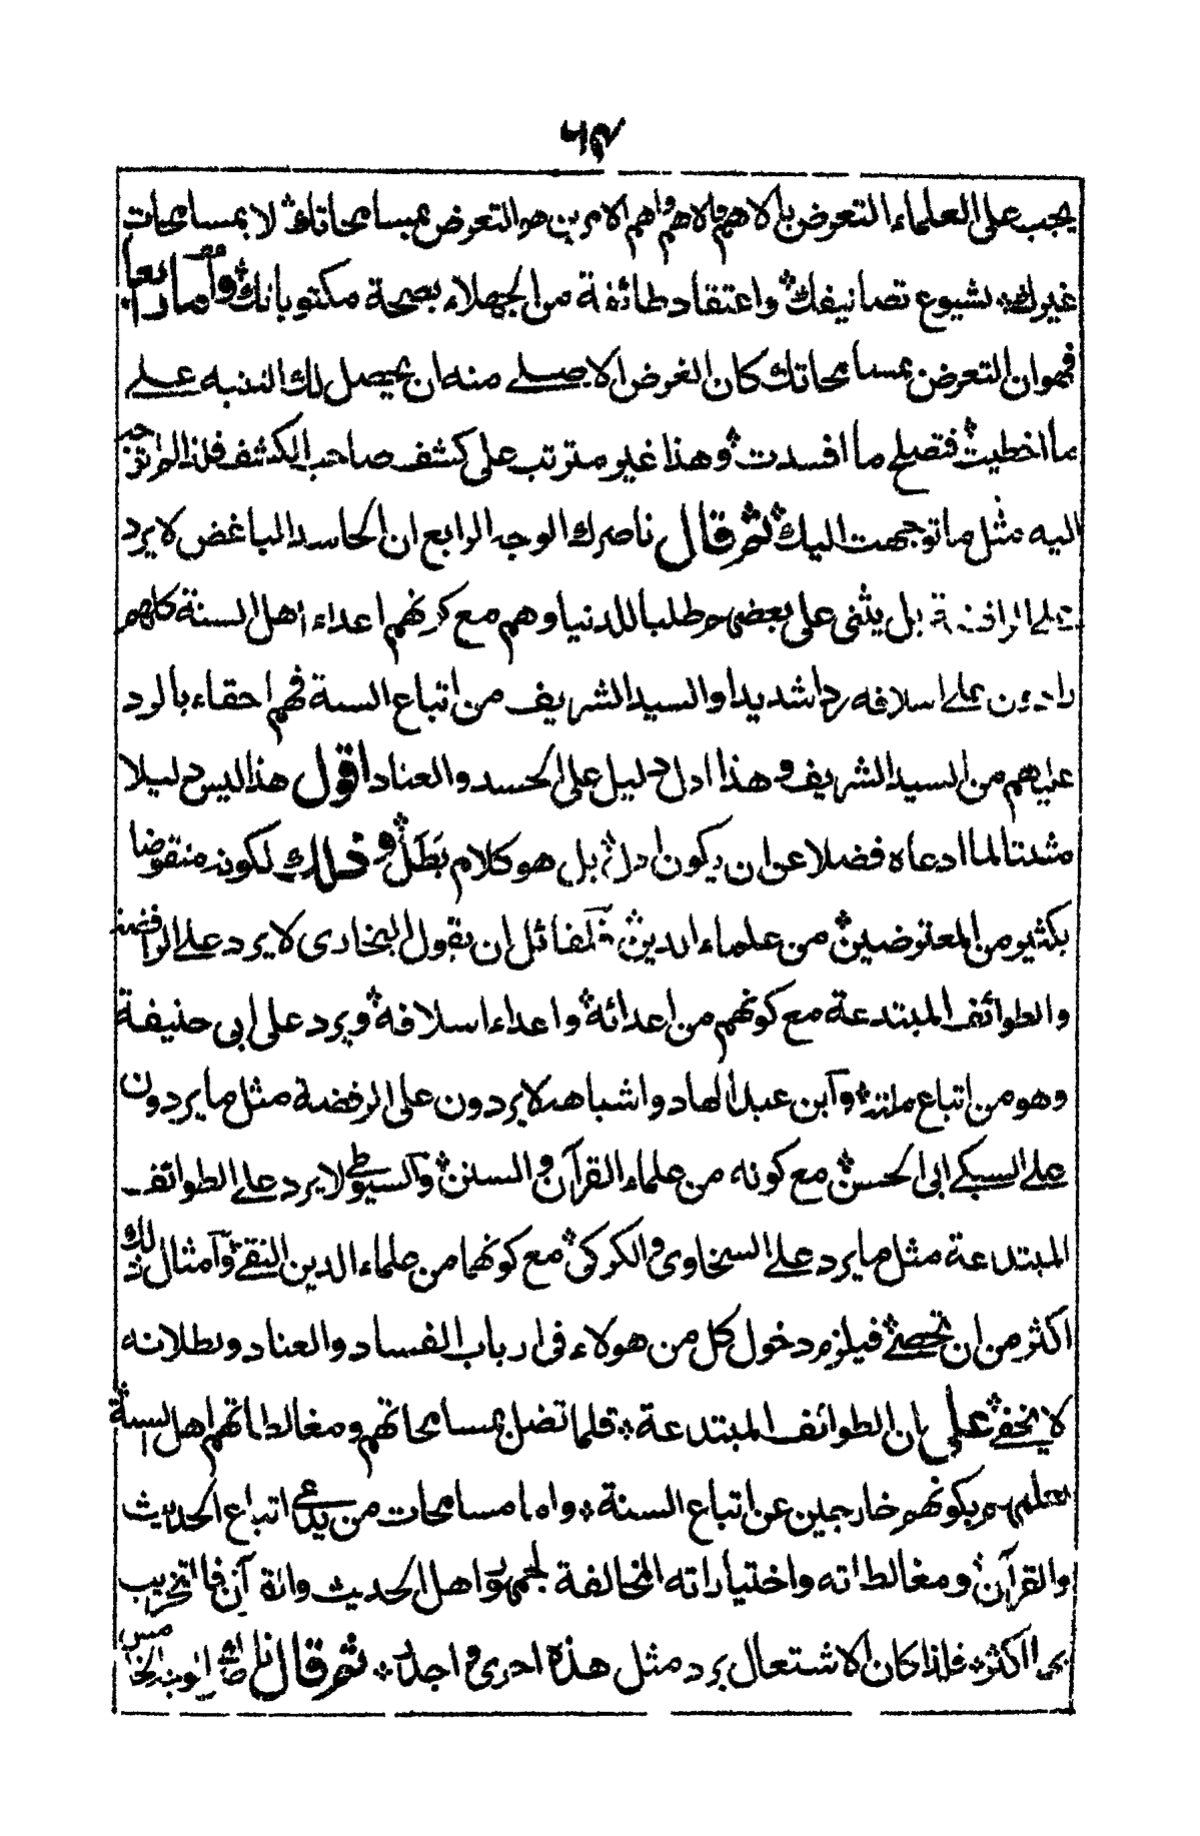 ٦٤
يجب على العلماء التعرض بالاهم فالاهم واهم الامرين هو التعرض بمسامحاتك لا بمسامحات
غيرك لشيوع تصانيفك واعتقاد طائفة من الجهلاء بصحة مكتوباتك واما رابعا
فهو ان التعرض بمسامحاتك كان الغرض الاصلے منه ان يحصل لك التنبه علے
ما اخطيت فتصلح ما افسدت وهذا غير مترتب على كشف صاحب الكشف فلذا لم اتوجه
اليه مثل ما توجهت اليك ثم قال ناصرك الوجه الرابع ان الحاسد المباغض لا يرد
علے الرافضة بل يثنى على بعضهم طلبا للدنيا وهم مع كونهم اعداء اهل السنة كلهم
رادون على اسلافه ردا شديدا والسيد الشريف من اتباع السنة فهم احقاء بالرد
عليهم من السيد الشريف وهذا ادل دليل على الحسد والعناد اقول هذا ليس دليلا
مثبتا لما ادعاه فضلا عن ان يكون ادل بل هو كلام بطل وذلك لكونه منقوضا
بكثير من المعترضين من علماء الدين فلقائل ان يقول البخارى لا يرد علے الرافضة
والطوائف المبتدعة مع كونهم من اعدائه واعداء اسلافه ويرد على ابى حنيفة
وهو من اتباع ملته وابن عبد الهاد واشباهه لا يردون على الرفضة مثل ما يردون
علے السبكے ابى الحسن مع كونه من علماء القرآن والسنن والسيوطے لا يرد علے الطوائف
المبتدعة مثل ما يرد علے السخاوى والكركى مع كونهما من علماء الدين النقے وامثال ذلك
اكثر من ان تحصے فيلزم دخول كل من هولاء فى ارباب الفساد والعناد وبطلانه
لا يخفے على ان الطوائف المبتدعة قلما تضل بمسامحاتهم ومغالطاتهم اهل السنة
لعلمهم بكونهم خارجين عن اتباع السنة واما مسامحات من يدعى اتباع الحديث
والقرآن ومغالطاته واختياراته المخالفة لجمهور اهل الحديث والقرآن فالتخريب
بها اكثر فلذا كان الاشتغال برد مثل هذه احرى واجدر ثم قال ناصرك الوجه الخامس